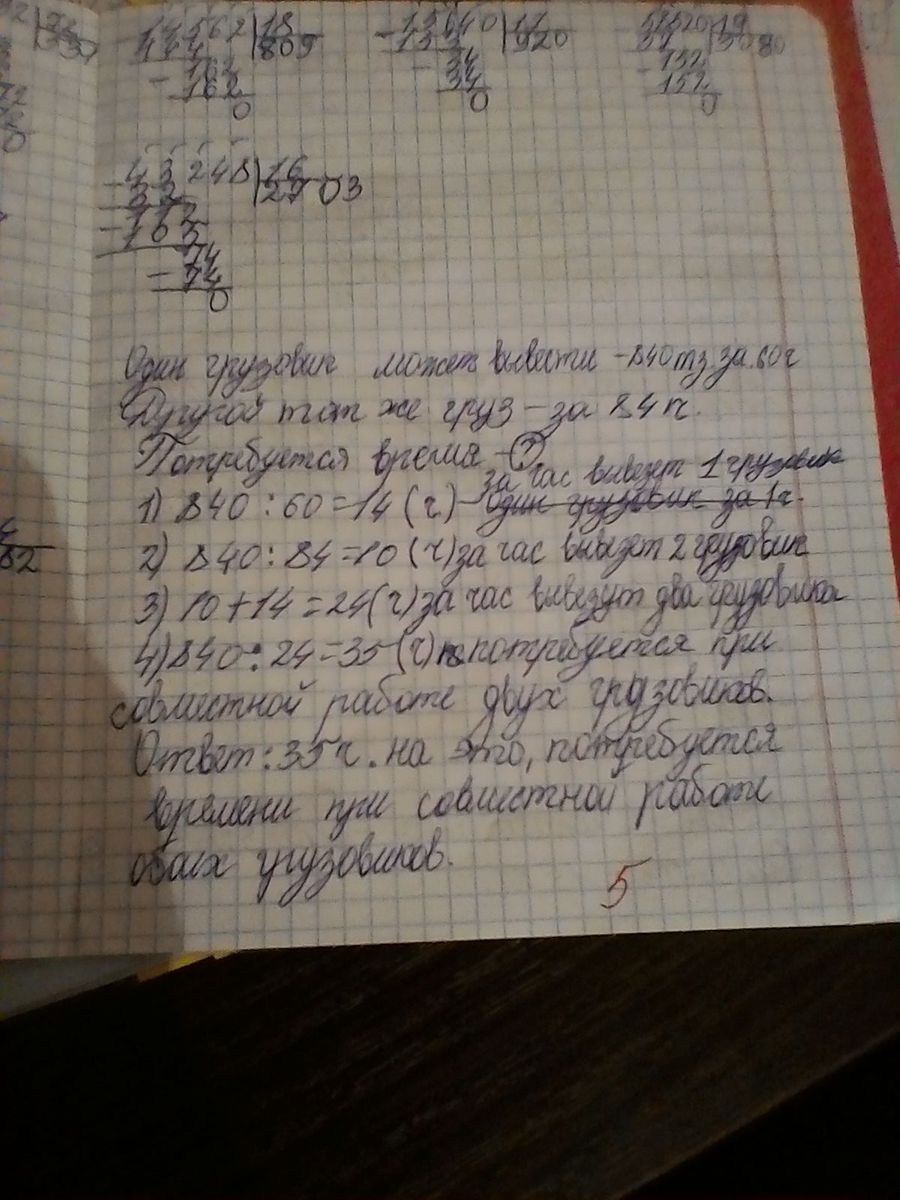 14562 18
144 809
162
162
0
15640 17
153 920
34
34
0
58520 19
57 3080
152
152
0
43248 16
32 2703
112
74
74
0
Один грузовик может вывести - 840 тз. за. 60 ч
Другой тот же груз - за 84 ч.
Потребуется время - ?
за час вывезет 1 грузовик
1) 840 : 60 = 14 (г) - один грузовик за 1 ч.
2) 840 : 84 = 10 (г) за час вывезет 2 грузовик
3) 10 + 14 = 24 (г) за час вывезут два грузовика
4) 840 : 24 = 35 (г) потребуется при
совместной работе двух грузовиков.
Ответ: 35 ч. на это, потребуется
времени при совместной работе
обоих грузовиков.
5